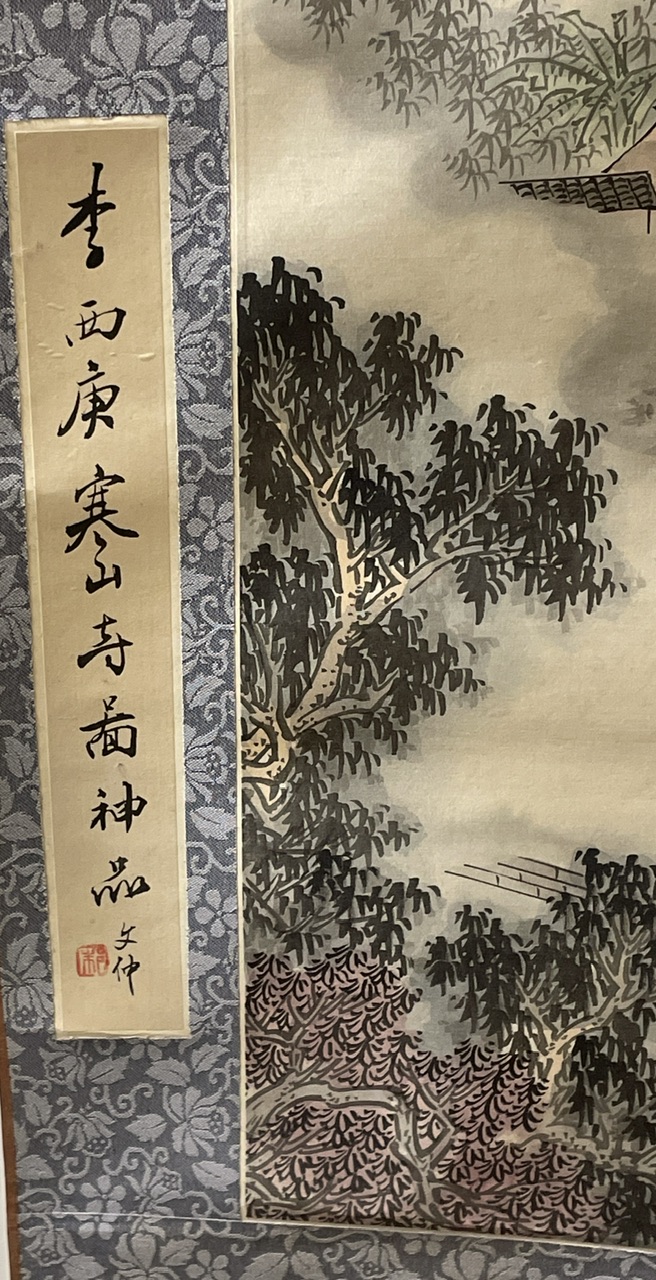 李西庚寒山寺啚神品
文仲